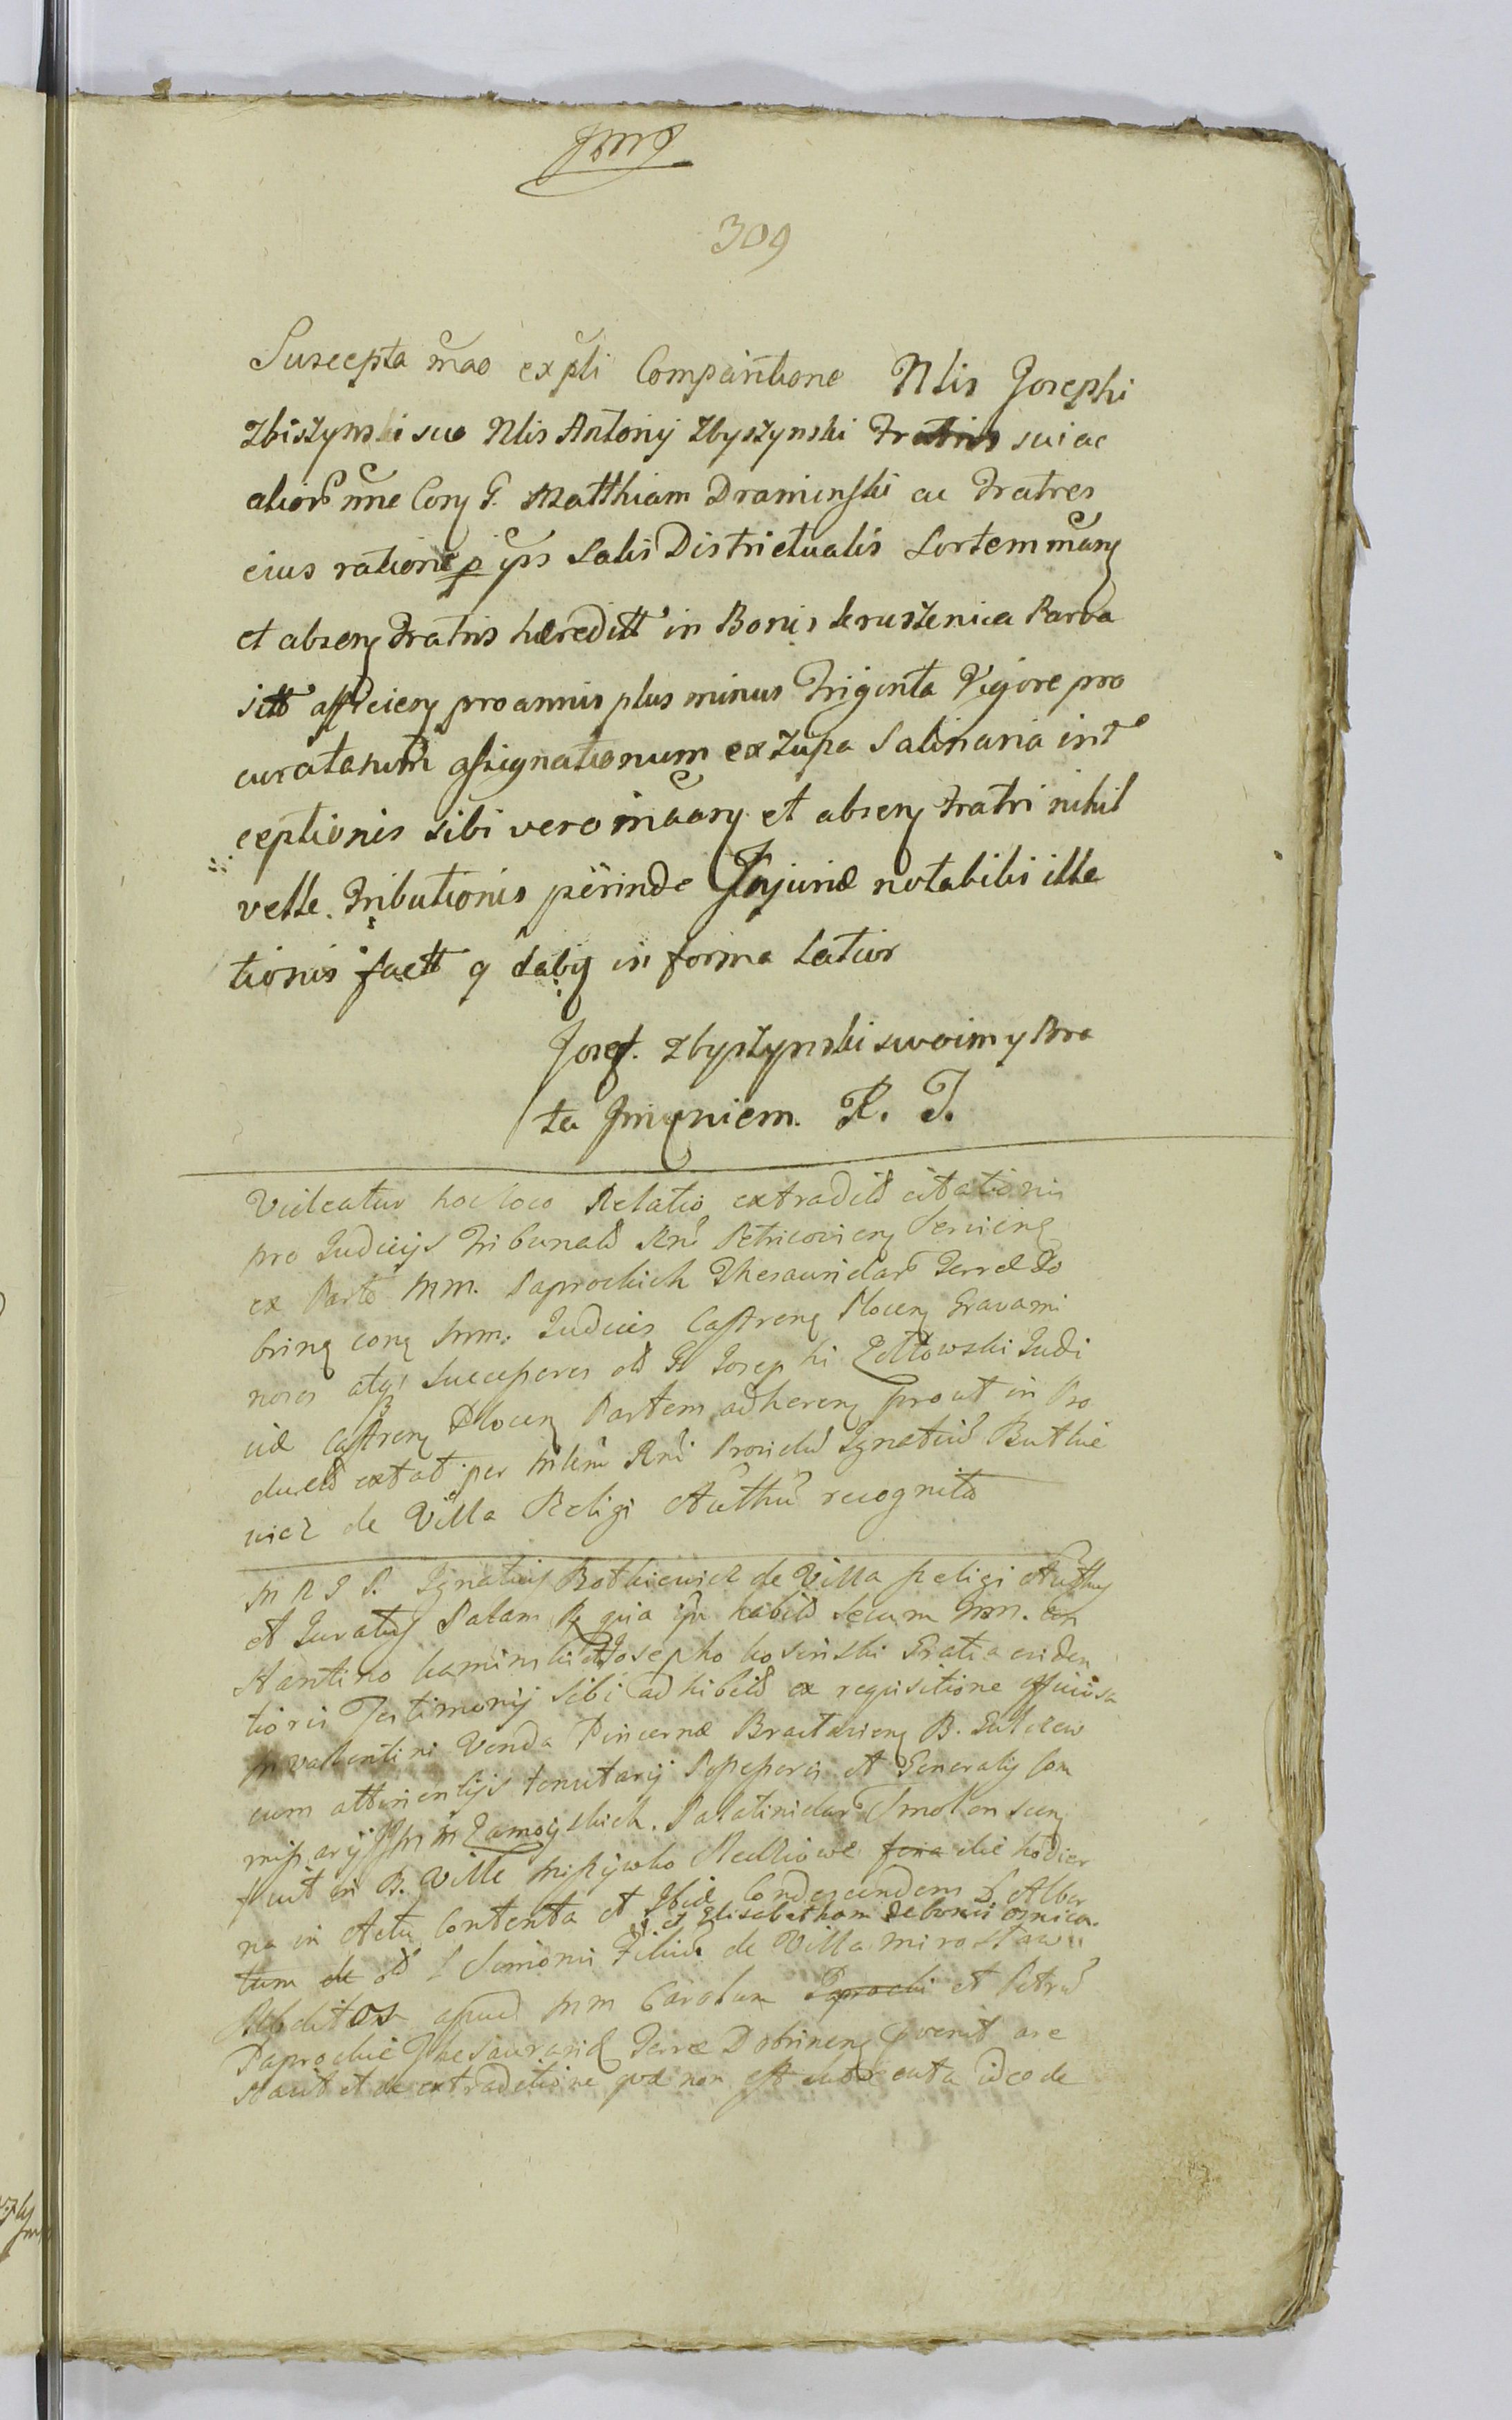 309
Suscepta mao expti Comparitione Nlis Josephi
Zbiszynski suo Nlis Antonij Zbyszynski Fratris sui ac
alior nne Conq G. Matthiam Draminski ac Fratres
eius ratione p ips Salis Districtualis Sortem manq
et absenq Fratris hæreditt in Bonis kruszenica Parva
sitt afficienq pro annis plus minus Triginta Vigore pro
curatarum assignationum ex Zupa Salinaria int
ceptionis sibi vero maanq et absenq Fratri nihil
velle Tributionis perinde Injuriæ notabilis illa
tionis factt q dabiq in forma latior
Josef. Zbyszynski swoim y Bra
ta Jmieniem. R. T.
Videatur hoc loco Relatio extradit citationis
pro Judicijs Tribunal Rni Petricovienq Servienq
ex Parte MM. Paprockich Thesauridar Terræ Do
brinq conq Mm. Judicis Castrenq Plocenq Gravami
nores atq Successores ol G Josephi Zołtowski Judi
cis Castrenq Plocenq Partem adherenq prout in Pro
ducto extat per Mlem Rni Providu Ignatiu Butkie
wicz de Villa Religi Authu recognita
M R I P. Ignatiuj Botkiewicz de Villa Religi Authuj
et Juratuj Palam R quia ipe habit Secum Mm.
Stantino kaminski et Josepho kosinski Gratia eviden
tioris Testimonij Sibi adhibit ex requisitione officiosa
M Vallentini Venda Pincernæ Braclavienq B.
cum attinentijs tenutarij Possessoris et Generalis Com
missarij MM Zamoyskich. Palatinidar Smolenscenq
fuit in B. Ville die hodier
na in Actu Contenta et Ibidem Condescendens L Alber
et Elisabetham de bonis
tum de ol L Simonis Filiu de Villa Mirosław
Subditos apud MM Carolum Paprocki et Petru
Paprockie Thesauraridq Terræ Dobrinenq
et de extraditione quæ non est ideo de